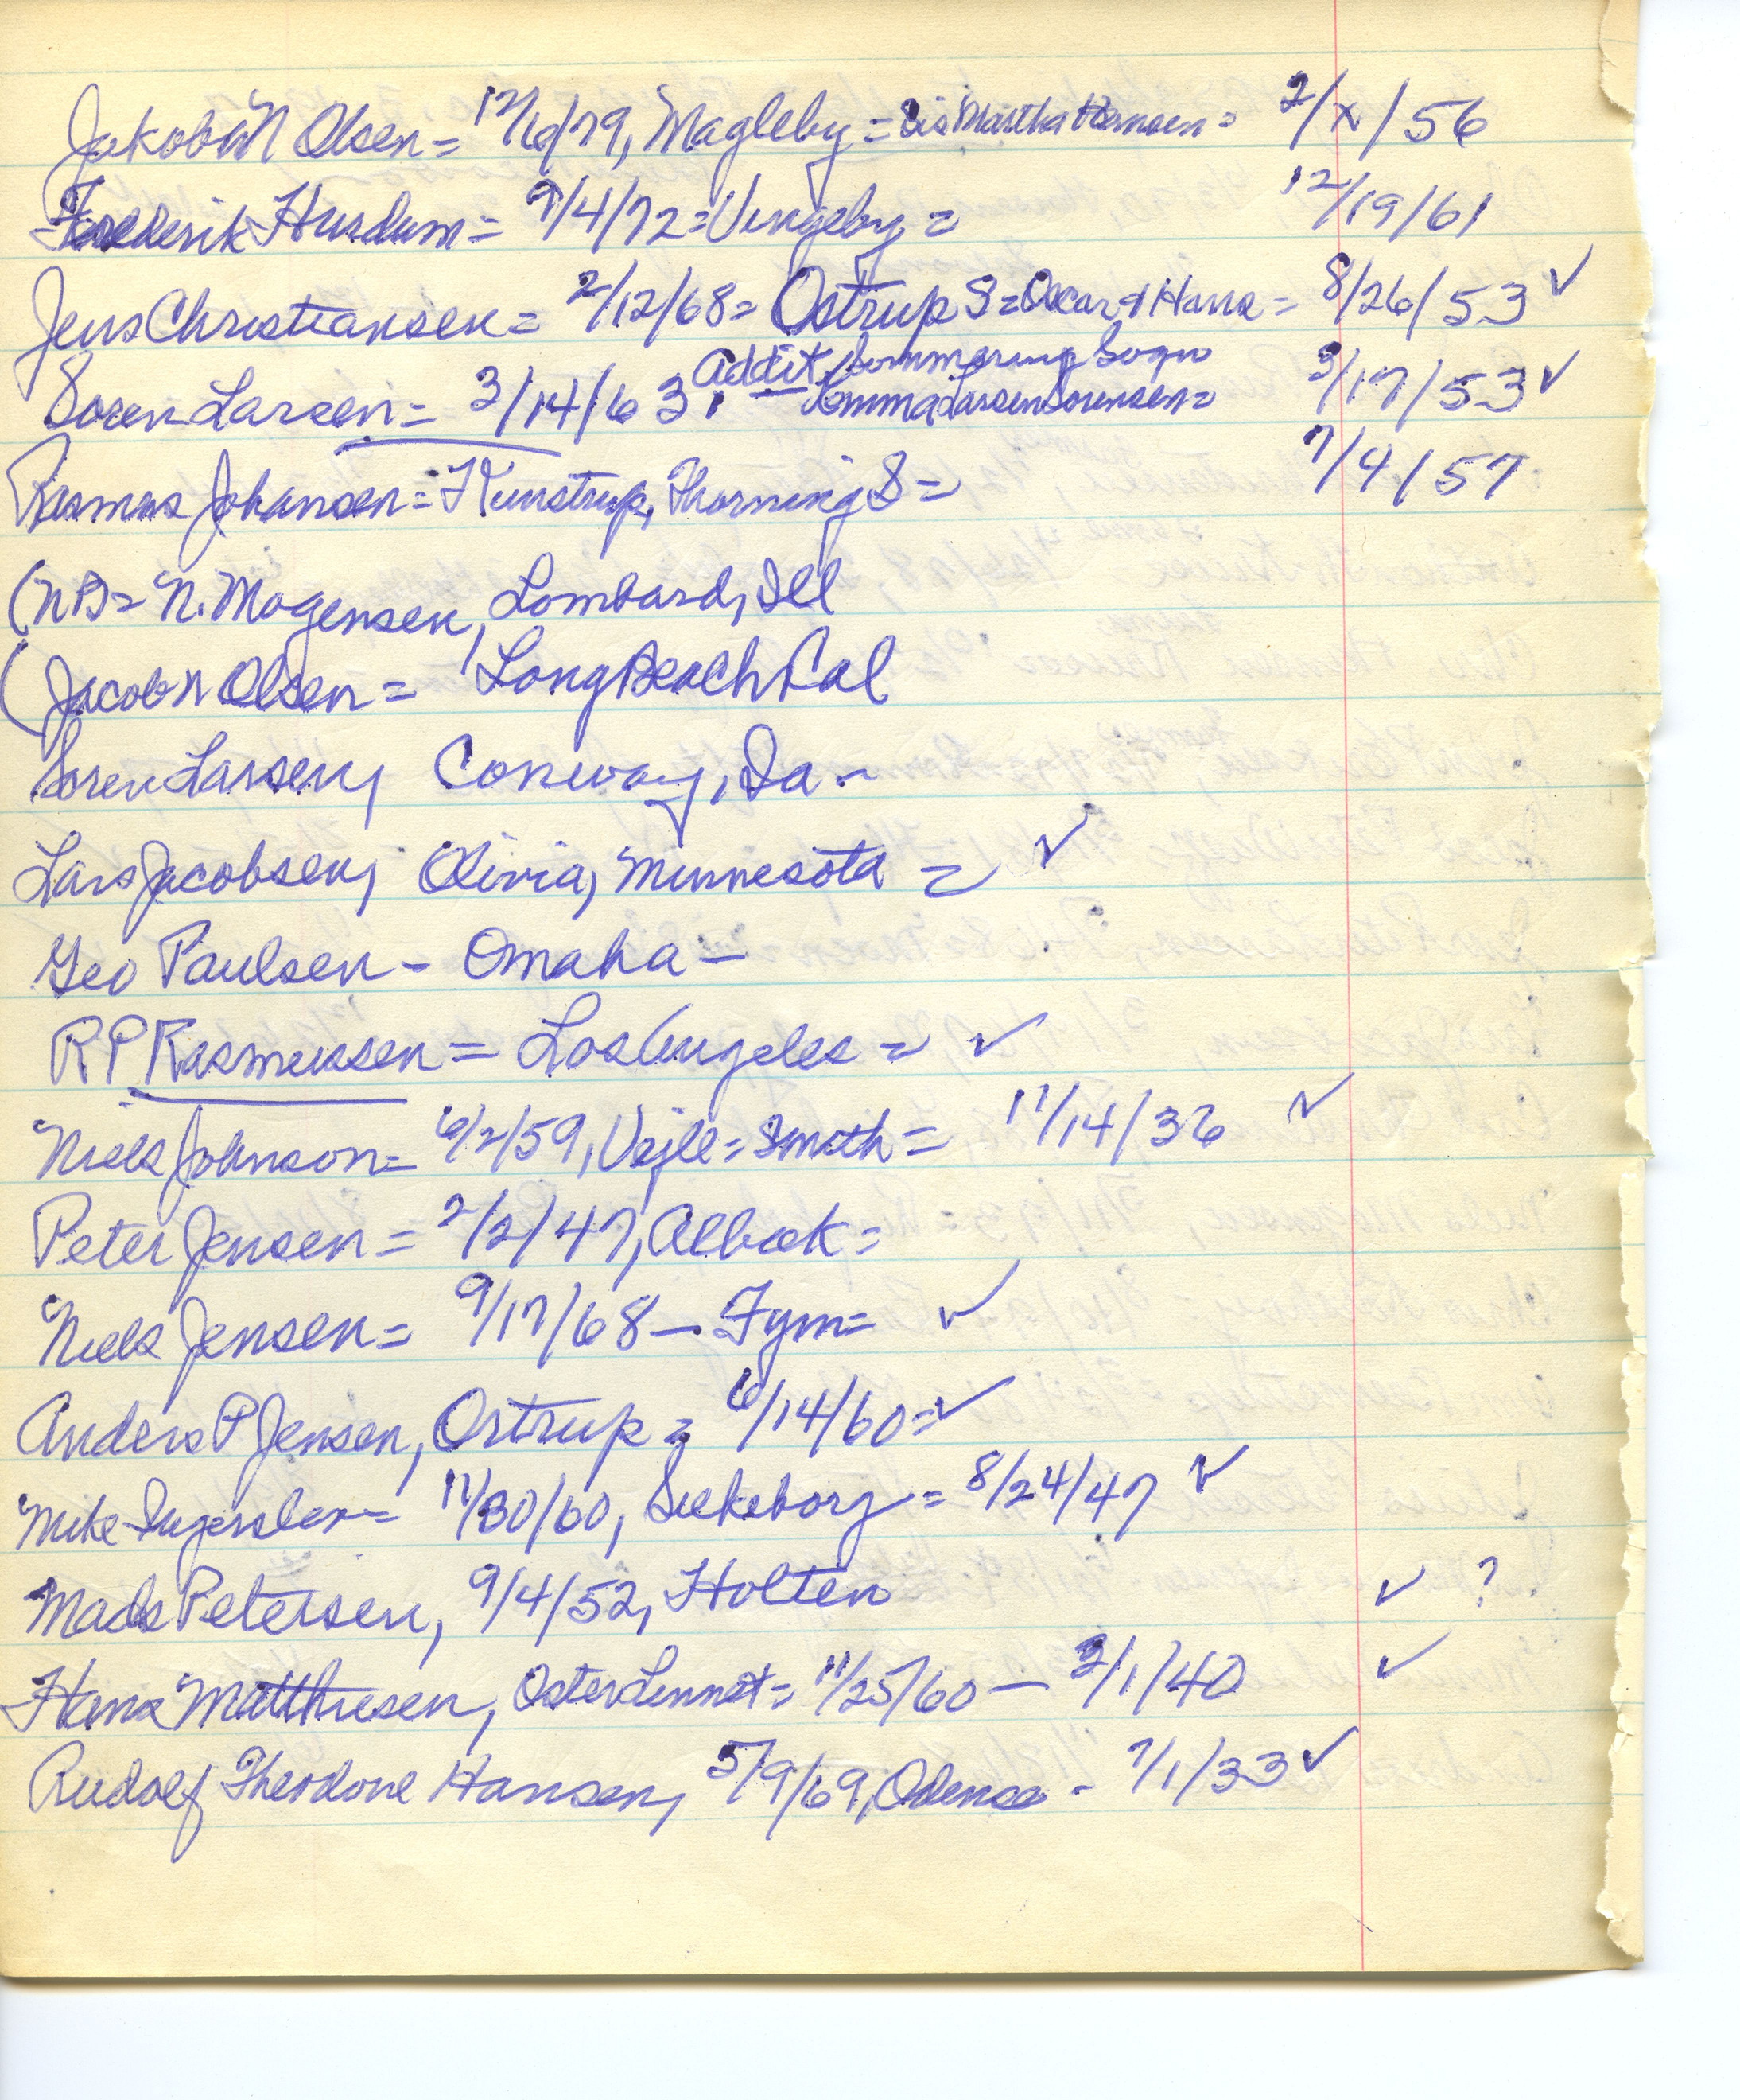 Jakob N Olsen = 12/6/79, Magleby = Sis Martha Hansen = 2/x/56
Frederik Hurdum = 7/4/72 = Vingeby = 12/19/61
Jens Christiansen = 2/12/68 = Ostrup S = Oscar & Hans = 8/26/53 ✓
Addit, Sogn
Soren Larsen = 3/14/63, — Emma Larsen Sorensen = 3/17/53 ✓
Rasmus Johansen = Thorning S = 7/4/57
(NB = N. Mogensen, Lombard, Ill
(Jacob N Olsen = Long Beach Cal
Soren Larsen, Conway, Ia -
Lars Jacobsen, Olivia, Minnesota = ✓
Geo Paulsen - Omaha -
R P Rasmussen = Los Angeles = ✓
Niels Johnson = 6/2/59, Vejle = Smith = 11/14/36 ✓
Peter Jensen = 2/2/47, Albaek =
Niels Jensen = 9/17/68 - Fyn = ✓
Anders P Jensen, Ostrup = 6/14/60 = ✓
Mike = 11/30/60, = 8/24/47 ✓
Mads Petersen, 9/4/52, Holten ✓ ?
Hans Matthiesen, Oster Linnet = 11/25/60 — 2/1/40 ✓
Rudolf Theodore Hansen, 5/9/69, Odense - 7/1/33 ✓